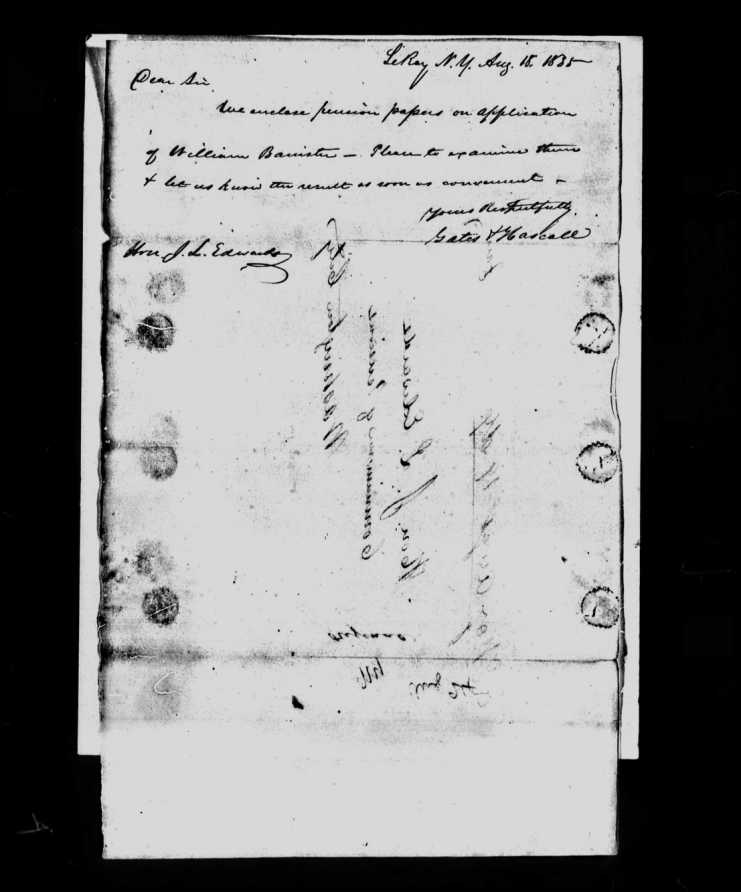 LeRoy N.Y. Aug. 18. 1835
Dear Sir
We enclose pension papers on application
of William Banister – Please to examine them
& let us know the result as soon as convenient –
Yours Respectfully.
Gates & Hascall
Hon J. L. Edwards
Hon. J. L. Edwards
Commissioner of Pensions
Washington City